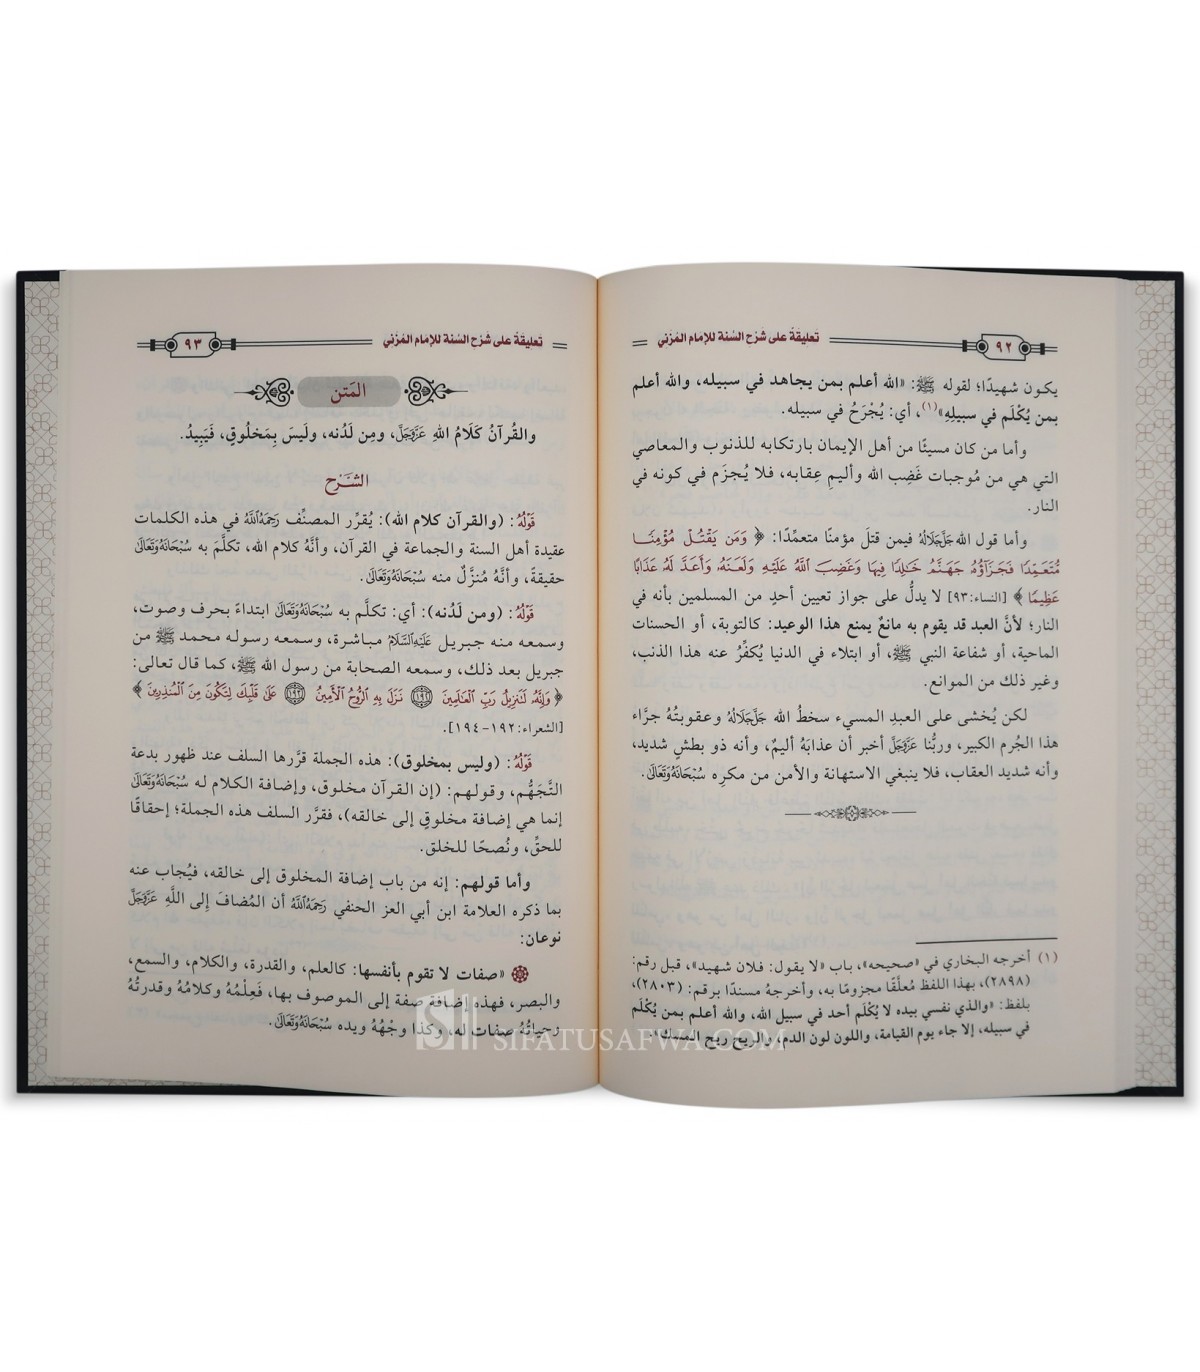 ٩٢
تعليقة على شرح السنة للإمام المزني
يكون شهيدًا؛ لقوله ﷺ: «الله أعلم بمن يجاهد في سبيله، والله أعلم
بمن يُكْلَم في سبيلِهِ»(١)، أي: يُجْرَحُ في سبيله.
وأما من كان مسيئًا من أهل الإيمان بارتكابه للذنوب والمعاصي
التي هي من مُوجبات غَضِب الله وأليمِ عِقابه، فلا يُجزَم في كونه في
النار.
وأما قول الله جَلَّ جَلَالُهُ فيمن قتلَ مؤمنًا متعمِّدًا: ﴿ وَمَن يَقْتُلْ مُؤْمِنًا
مُّتَعَمِّدًا فَجَزَآؤُهُ جَهَنَّمُ خَٰلِدًا فِيهَا وَغَضِبَ ٱللَّهُ عَلَيْهِ وَلَعَنَهُ وَأَعَدَّ لَهُ عَذَابًا
عَظِيمًا ﴾ [النساء:٩٣] لا يدلُّ على جواز تعيين أحدٍ من المسلمين بأنه في
النار؛ لأنَّ العبد قد يقوم به مانعٌ يمنع هذا الوعيد: كالتوبة، أو الحسنات
الماحية، أو شفاعة النبي ﷺ، أو ابتلاء في الدنيا يُكفِّرُ عنه هذا الذنب،
وغير ذلك من الموانع.
لكن يُخشى على العبدِ المسيء سخطُ الله جَلَّ جَلَالُهُ وعقوبتُهُ جرَّاء
هذا الجُرم الكبير، وربُّنا عَزَّوَجَلَّ أخبر أن عذابَهُ أليمٌ، وأنه ذو بطشٍ شديد،
وأنه شديد العقاب، فلا ينبغي الاستهانة والأمن من مكرِه سُبْحَانَهُ وَتَعَالَىٰ.
(١) أخرجه البخاري في «صحيحه»، باب «لا يقول: فلان شهيد»، قبل رقم:
(٢٨٩٨)، بهذا اللفظ مُعلَّقًا مجزومًا به، وأخرجهُ مسندًا برقم: (٢٨٠٣)،
بلفظ: «والذي نفسي بيده لا يُكْلَم أحد في سبيل الله، والله أعلم بمن يُكْلَم
في سبيله، إلا جاء يوم القيامة، واللون لون الدم، والريح ريح المسك».
٩٣
تعليقة على شرح السنة للإمام المزني
المَتن
والقُرآنُ كَلَامُ اللهِ عَزَّوَجَلَّ، ومِن لَدُنه، ولَيسَ بِمَخلُوقٍ، فَيَبِيدُ.
الشَّرح
قَوْلُهُ: (والقرآن كلام الله): يُقرِّر المصنِّف رَحِمَهُ اللَّهُ في هذه الكلمات
عقيدة أهل السنة والجماعة في القرآن، وأنَّهُ كلام الله، تكلَّم به سُبْحَانَهُ وَتَعَالَىٰ
حقيقةً، وأنَّهُ مُنزَّلٌ منه سُبْحَانَهُ وَتَعَالَىٰ.
قَوْلُهُ: (ومن لَدُنه): أي: تكلَّم به سُبْحَانَهُ وَتَعَالَىٰ ابتداءً بحرف وصوت،
وسمعه منه جبريل عَلَيْهِ السَّلَامُ مباشرة، وسمعه رسوله محمد ﷺ من
جبريل بعد ذلك، وسمعه الصحابة من رسول الله ﷺ، كما قال تعالى:
﴿ وَإِنَّهُ لَتَنزِيلُ رَبِّ ٱلْعَٰلَمِينَ ١٩٢ نَزَلَ بِهِ ٱلرُّوحُ ٱلْأَمِينُ ١٩٣ عَلَىٰ قَلْبِكَ لِتَكُونَ مِنَ ٱلْمُنذِرِينَ ﴾
[الشعراء:١٩٢-١٩٤].
قَوْلُهُ: (وليس بمخلوق): هذه الجملة قرَّرها السلف عند ظهور بدعة
التَّجَهُّم، وقولهم: (إن القرآن مخلوق، وإضافة الكلام له سُبْحَانَهُ وَتَعَالَىٰ
إنما هي إضافة مخلوقٍ إلى خالقه)، فقرَّر السلف هذه الجملة؛ إحقاقًا
للحقِّ، ونُصحًا للخلق.
وأما قولهم: إنه من باب إضافة المخلوق إلى خالقه، فيُجاب عنه
بما ذكره العلامة ابن أبي العز الحنفي رَحِمَهُ اللَّهُ أن المُضافَ إلى اللَّهِ عَزَّوَجَلَّ
نوعان:
«صفات لا تقوم بأنفسها: كالعلم، والقدرة، والكلام، والسمع،
والبصر، فهذه إضافة صفة إلى الموصوف بها، فَعِلْمُهُ وكلامُهُ وقدرتُهُ
وحياتُهُ صفات له، وكذا وجْهُهُ ويده سُبْحَانَهُ وَتَعَالَىٰ.
SIFATUSAFWA.COM